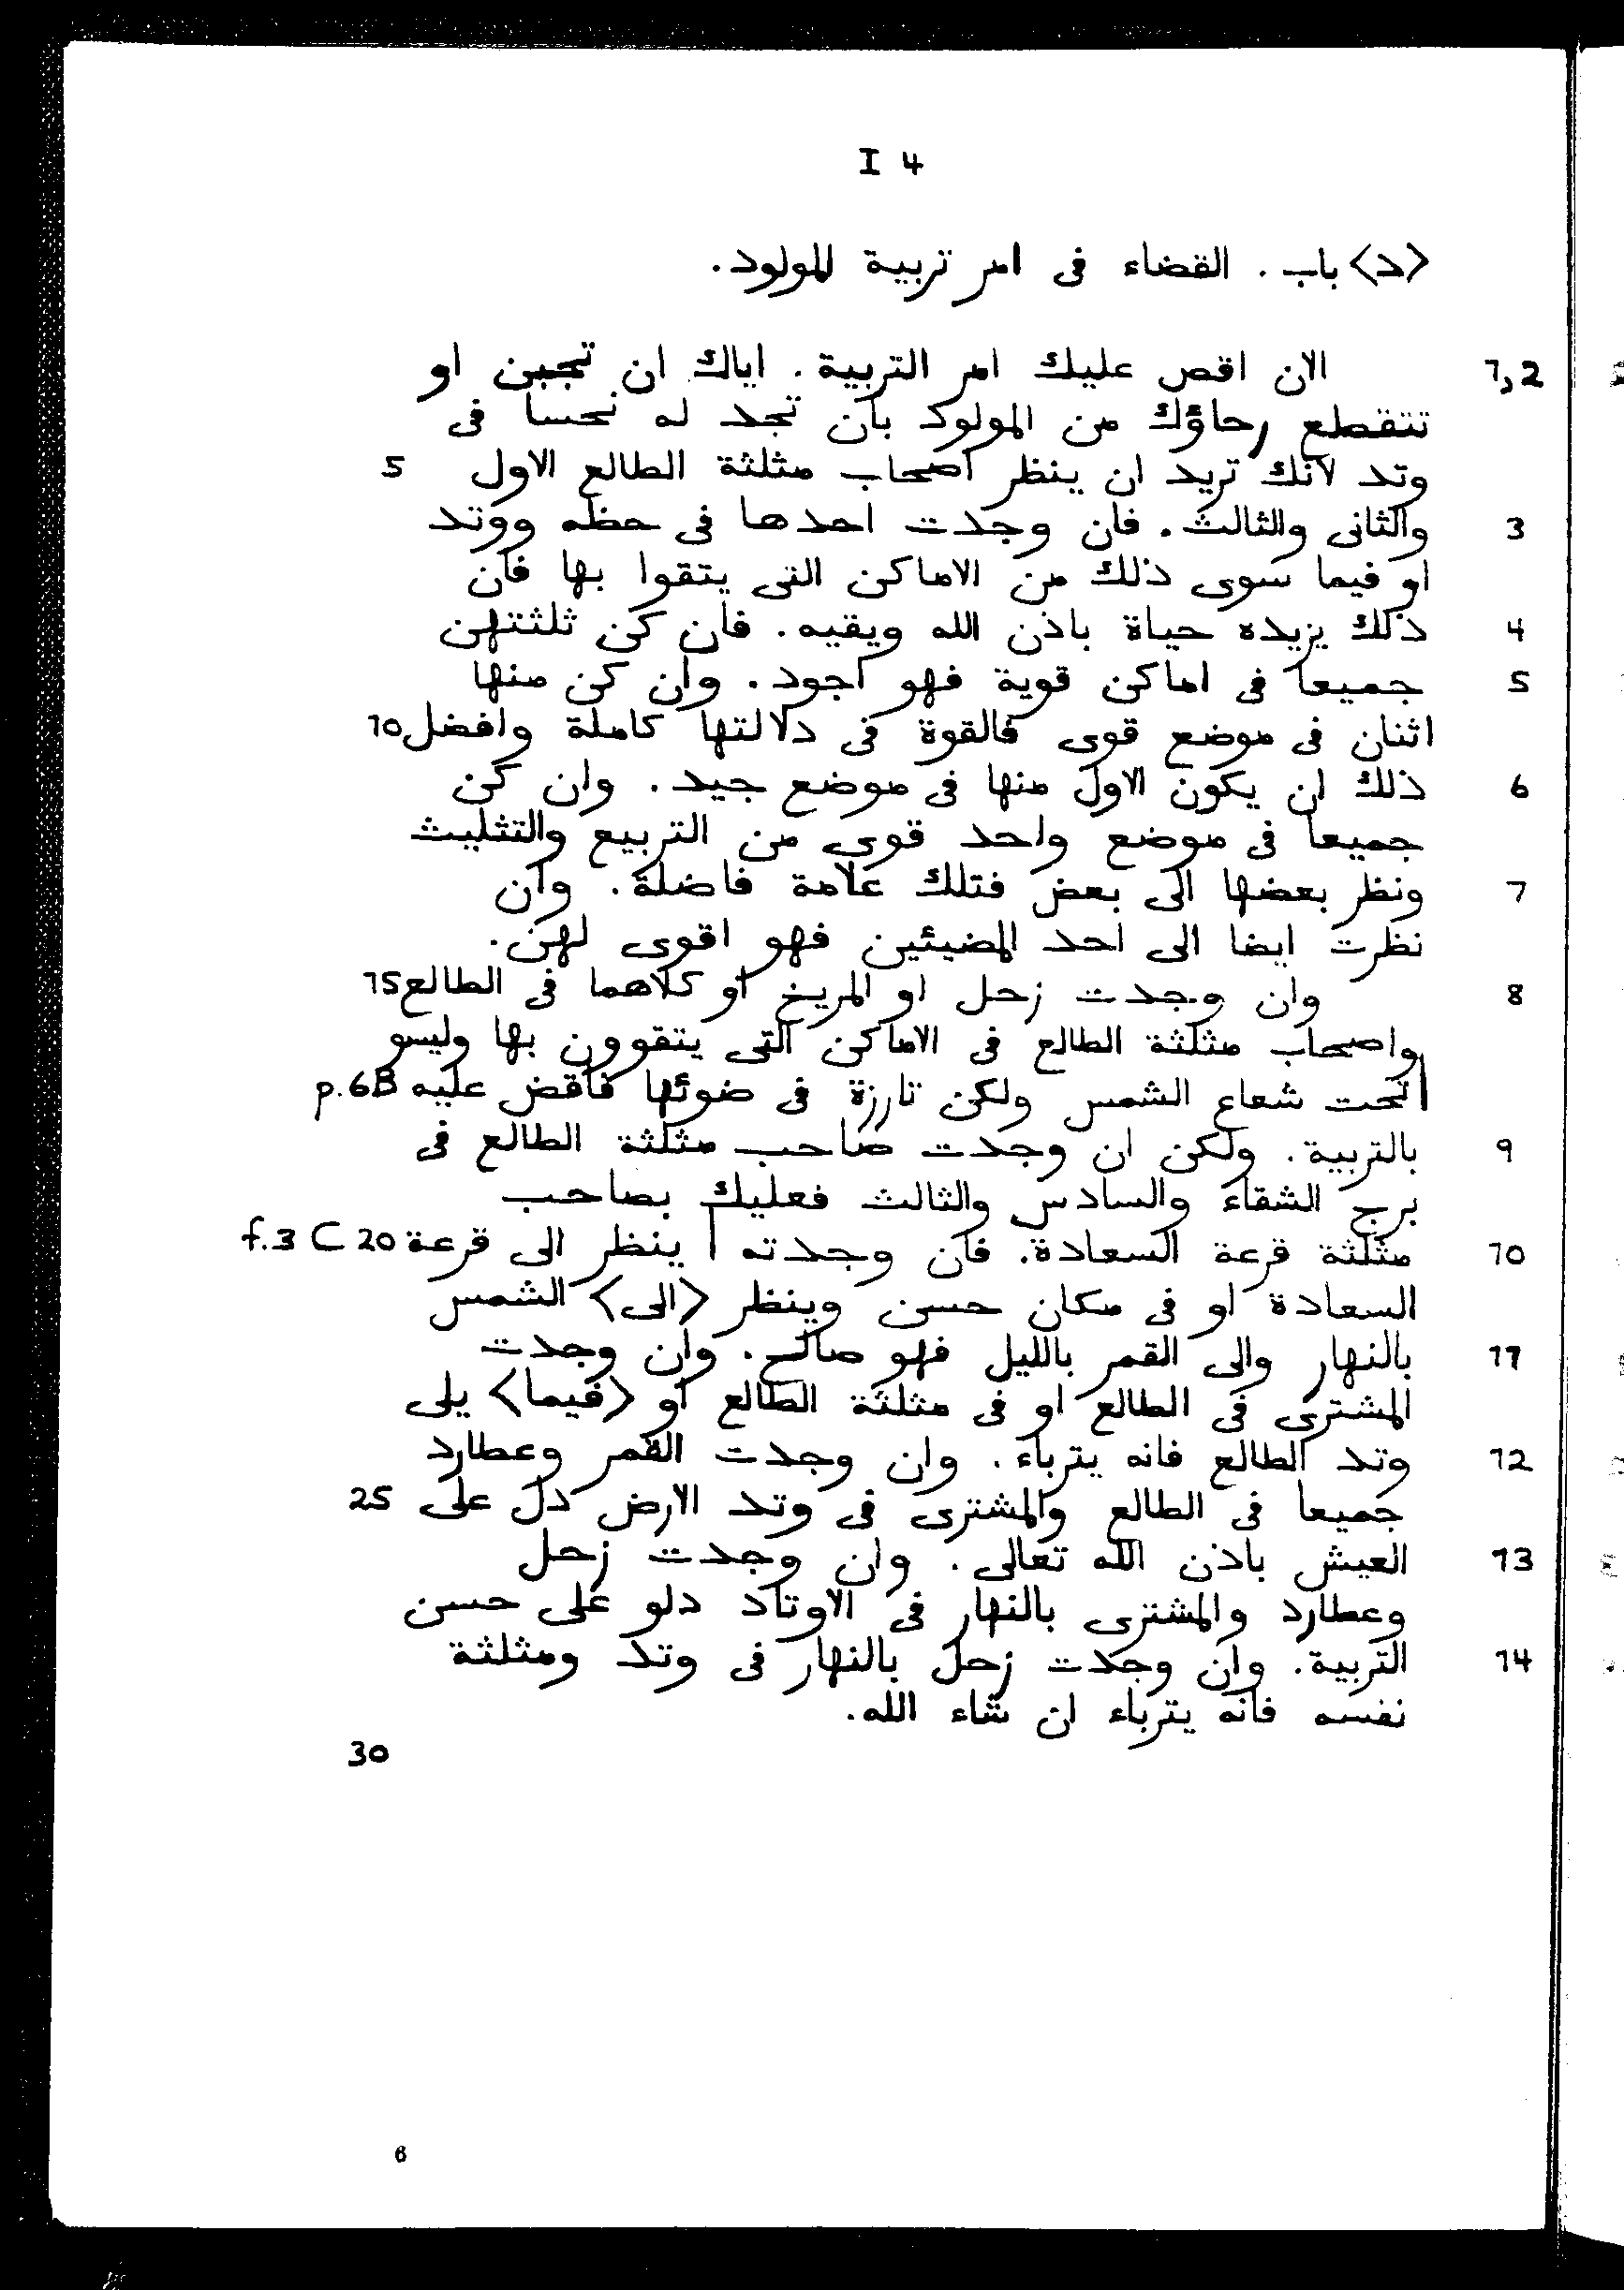 I 4
<د> باب . القضاء فى امر تربية المولود.
1,2 الان اقص عليك امر التربية . اياك ان تجبن او
تتقطع رجاؤك من المولود بان تجد له نحسا فى
وتد لانك تريد ان ينظر اصحاب مثلثة الطالع الاول 5
3 والثانى والثالث . فان وجدت احدها فى حظه ووتد
او فيما سوى ذلك من الاماكن التى يتقوا بها فان
4 ذلك يزيده حياة باذن الله ويقيه . فان كن ثلثتهن
5 جميعا فى اماكن قوية فهو اجود . وان كن منها
اثنان فى موضع قوى فالقوة فى دلالتها كاملة وافضل 10
6 ذلك ان يكون الاول منها فى موضع جيد . وان كن
جميعا فى موضع واحد قوى من التربيع والتثليث
7 ونظر بعضها الى بعض فتلك علامة فاضلة . وان
نظرت ايضا الى احد المضيئين فهو اقوى لهن .
8 وان وجدت زحل او المريخ او كلاهما فى الطالع 15
واصحاب مثلثة الطالع فى الاماكن التى يتقوون بها وليسو
| تحت شعاع الشمس ولكن تارزة فى ضوئها فاقض عليه p.6B
9 بالتربية . ولكن ان وجدت صاحب مثلثة الطالع فى
برج الشقاء والسادس والثالث فعليك بصاحب
10 مثلثة قرعة السعادة . فان وجدته | ينظر الى قرعة f.3 C 20
السعادة او فى مكان حسن وينظر <الى> الشمس
11 بالنهار والى القمر بالليل فهو صالح . وان وجدت
المشترى فى الطالع او فى مثلثة الطالع او <فيما> يلى
12 وتد الطالع فانه يترباء . وان وجدت القمر وعطارد
جميعا فى الطالع والمشترى فى وتد الارض دل على 25
13 العيش باذن الله تعالى . وان وجدت زحل
وعطارد والمشترى بالنهار فى الاوتاد دلو على حسن
14 التربية . وان وجدت زحل بالنهار فى وتد ومثلثة
نفسه فانه يترباء ان شاء الله .
30
6